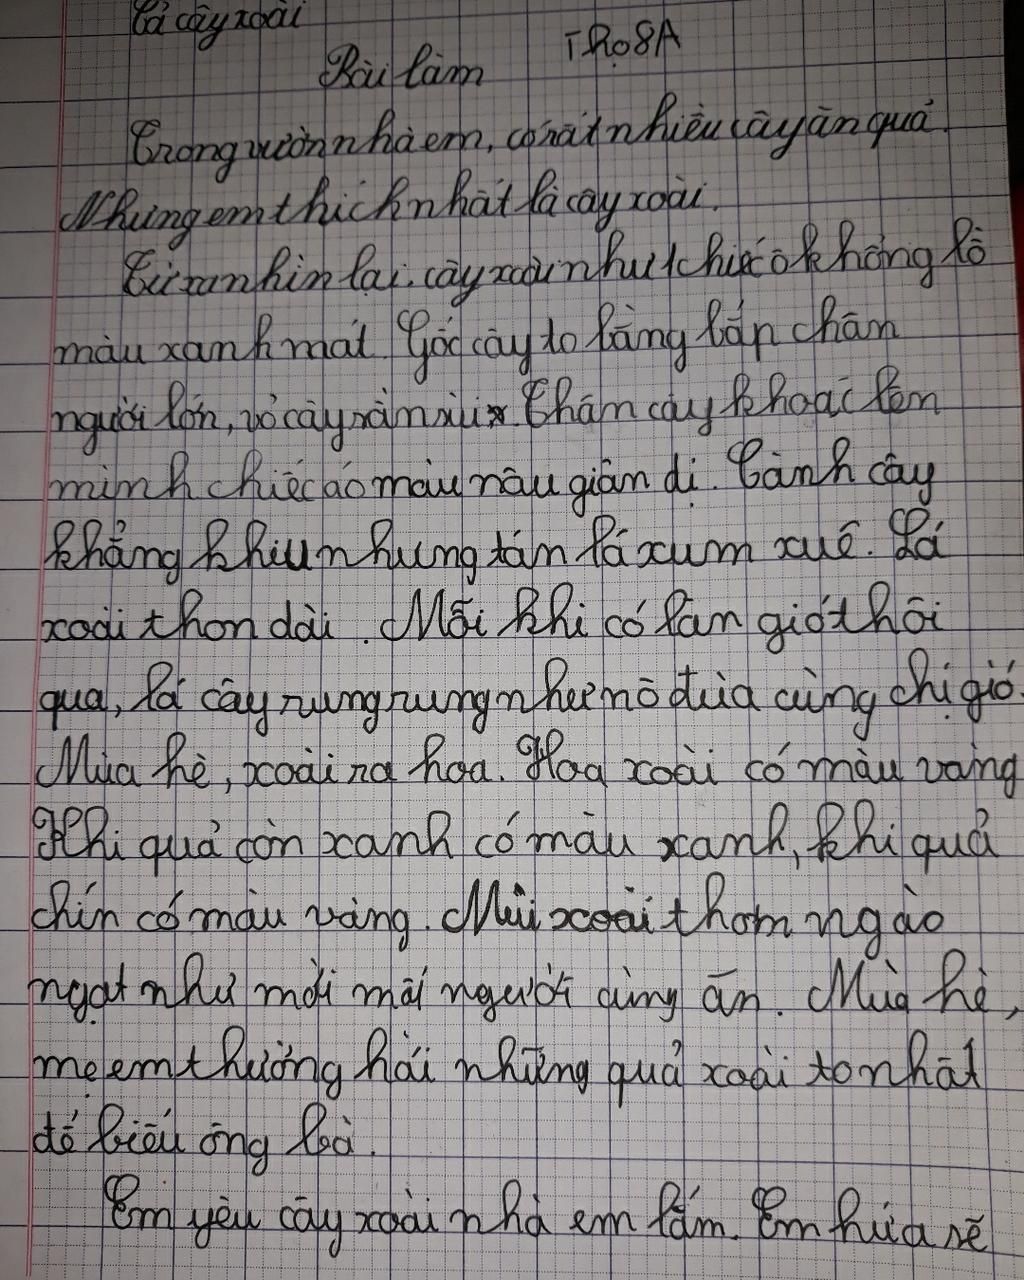 Tả cây xoài
TRọ8A
Bài làm
Trong vườn nhà em, có rất nhiều cây ăn quả.
Nhưng em thích nhất là cây xoài.
Từ xa nhìn lại, cây xoài như chiếc ô khổng lồ
màu xanh mát. Gốc cây to bằng bắp chân
người lớn, vỏ cây sần sùi. Thân cây khoác lên
mình chiếc áo màu nâu giản dị. Cành cây
khẳng khiu nhưng tán lá xum xuê. Lá
xoài thon dài. Mỗi khi có làn gió thổi
qua, lá cây rung rung như nô đùa cùng chị gió.
Mùa hè, xoài ra hoa. Hoa xoài có màu vàng
Khi quả còn xanh có màu xanh, khi quả
chín có màu vàng. Mùi xoài thơm ngào
ngạt như mời mọi người cùng ăn. Mùa hè,
mẹ em thường hái những quả xoài to nhất
để biếu ông bà.
Em yêu cây xoài nhà em lắm. Em hứa sẽ